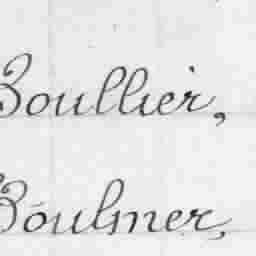 Boullier,
Boulmer,